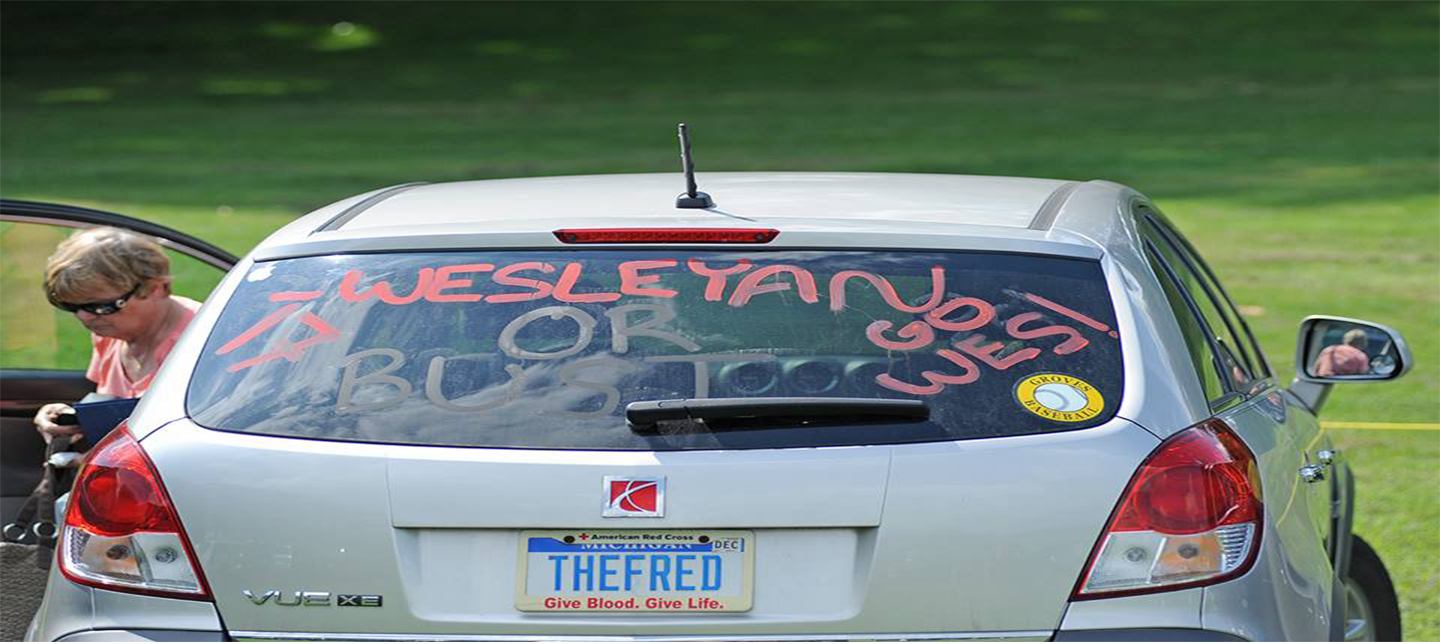 WESLEYAN
OR
BUST
GO
WES!
GROVES
BASEBALL
American Red Cross
MICHIGAN
DEC
THEFRED
Give Blood. Give Life.
VUE XE